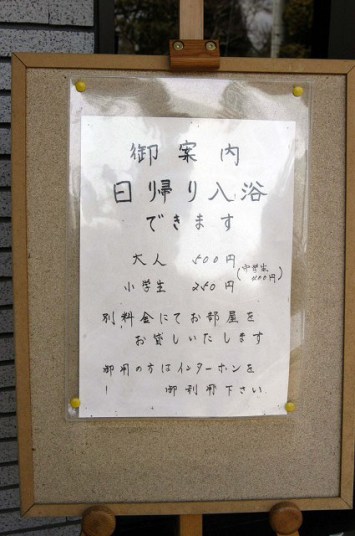 御案内
日帰り入浴
できます
大人 500円
(中学生
400円)
小学生 250円
別料金にてお部屋を
お貸しいたします
御用の方はインターホンを
御利用下さい